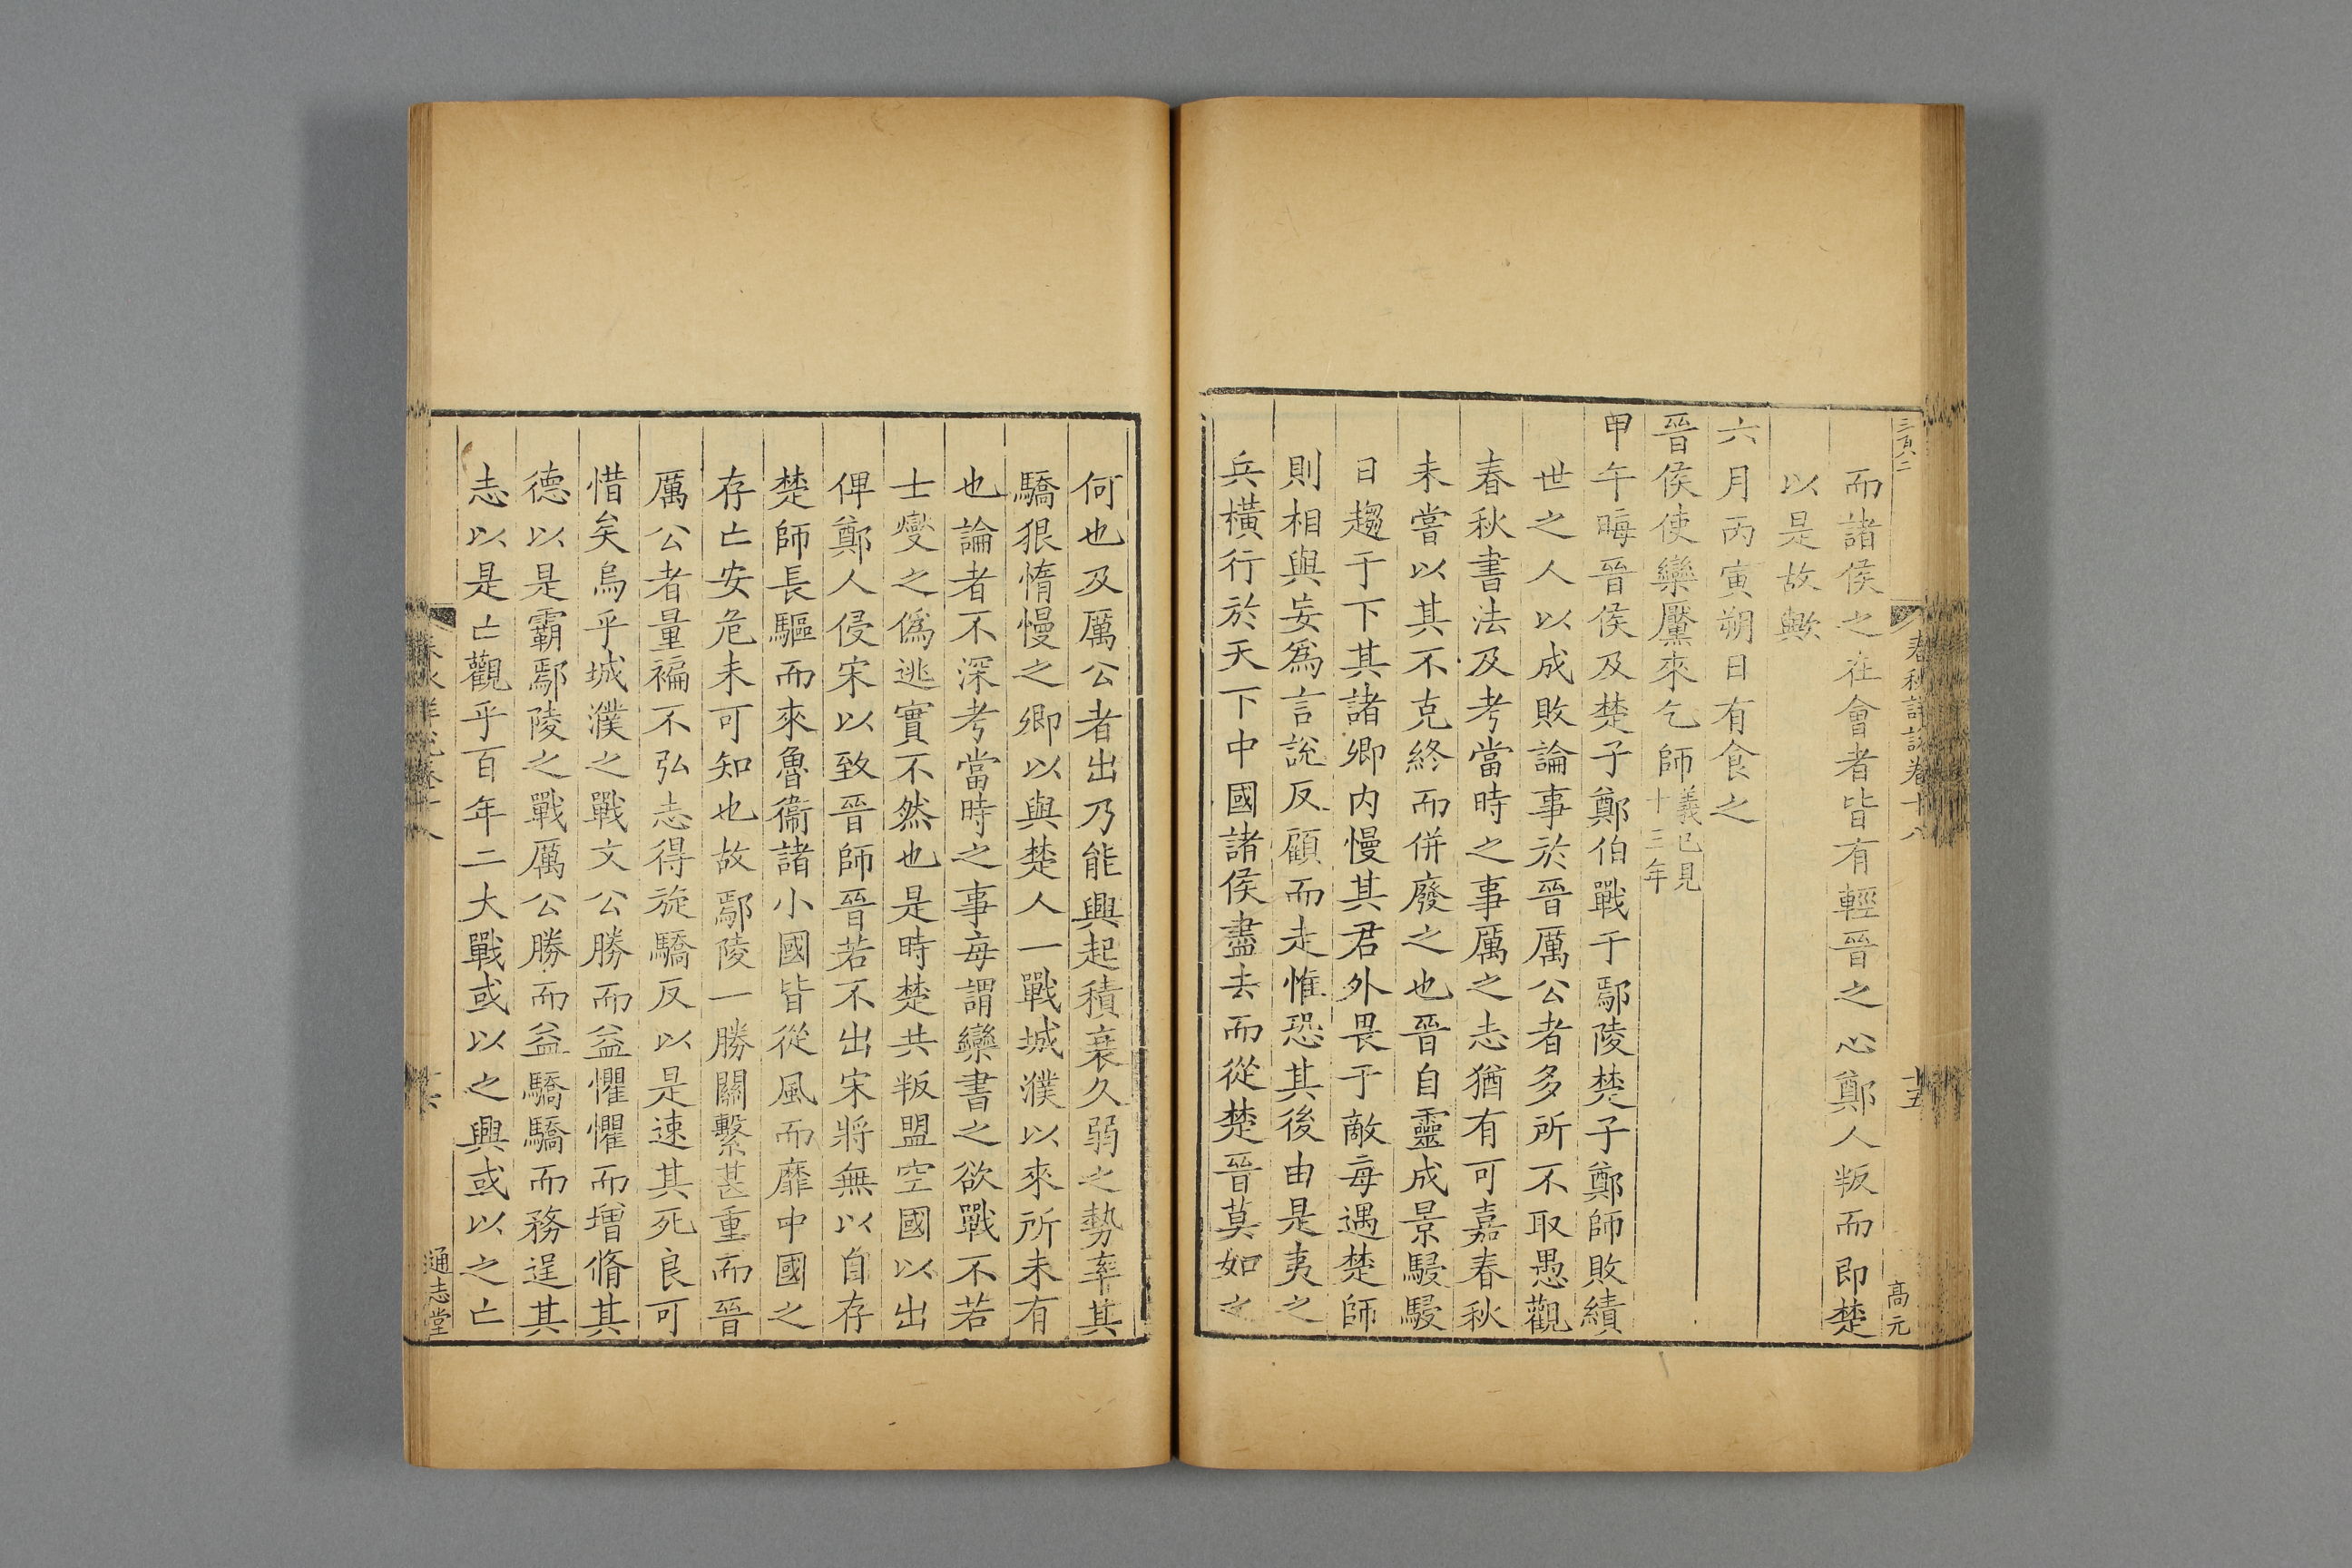 三百八二
春秋詳說卷十八
十五
高元
而諸侯之在會者皆有輕晉之心鄭人叛而即楚
以是故歟
六月丙寅朔日有食之
晉侯使欒黶來乞師義已見十三年
甲午晦晉侯及楚子鄭伯戰于鄢陵楚子鄭師敗績
世之人以成敗論事於晉厲公者多所不取愚觀
春秋書法及考當時之事厲之志猶有可嘉春秋
未嘗以其不克終而併廢之也晉自靈成景駸駸
日趨于下其諸卿内慢其君外畏于敵每遇楚師
則相與妄爲言說反顧而走惟恐其後由是夷之
兵橫行於天下中國諸侯盡去而從楚晉莫如之
何也及厲公者出乃能興起積衰久弱之勢率其
驕狠惰慢之卿以與楚人一戰城濮以來所未有
也論者不深考當時之事每謂欒書之欲戰不若
士燮之僞逃實不然也是時楚共叛盟空國以出
俾鄭人侵宋以致晉師晉若不出宋將無以自存
楚師長驅而來魯衞諸小國皆從風而靡中國之
存亡安危未可知也故鄢陵一勝關繫甚重而晉
厲公者量褊不弘志得旋驕反以是速其死良可
惜矣烏乎城濮之戰文公勝而益懼懼而增脩其
德以是霸鄢陵之戰厲公勝而益驕驕而務逞其
志以是亡觀乎百年二大戰或以之興或以之亡
通志堂